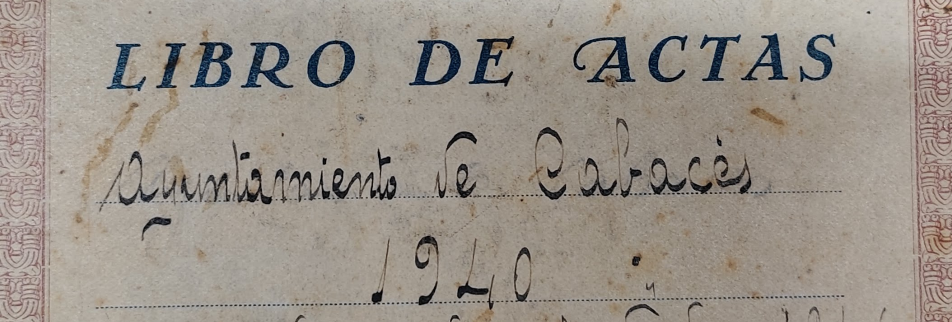 LIBRO DE ACTAS
Ayuntamiento de Cabacés
1940